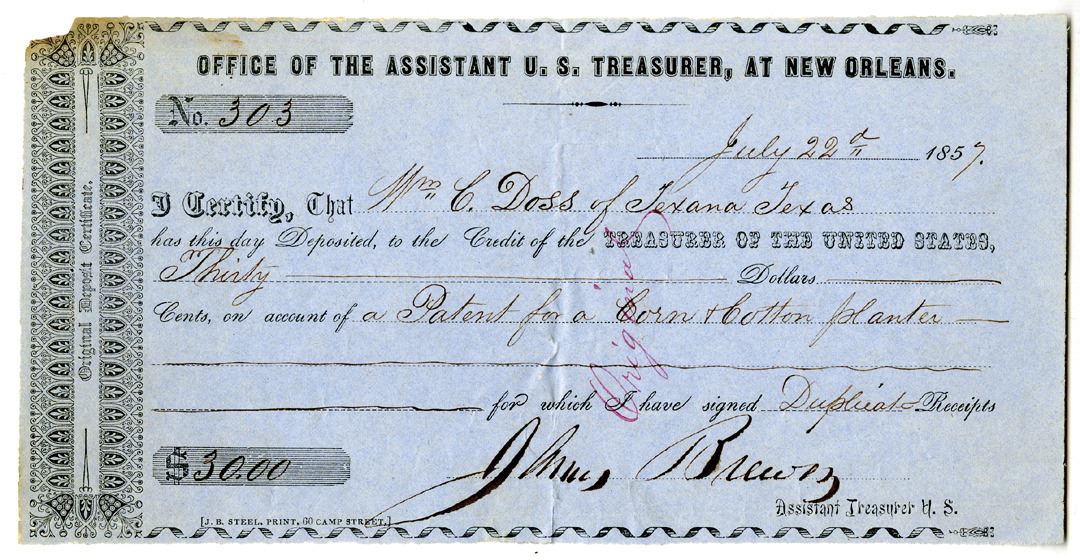 OFFICE OF THE ASSISTANT U. S. TREASURER, AT NEW ORLEANS.
No. 303
July 22d 1857.
I Certify, That Wm C. Doss of Texana Texas
has this day Deposited, to the Credit of the TREASURER OF THE UNITED STATES,
Thirty Dollars
Cents, on account of a Patent for a Corn & Cotton planter
for which I have signed Duplicate Receipts
$30.00
Assistant Treasurer U. S.
[J. B. STEEL, PRINT, 60 CAMP STREET.]
Original Deposit Certificate.
Original